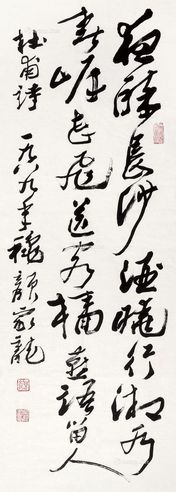 夜醉長沙酒曉行湘水
春岸花飛送客檣燕語留人
杜甫詩 一九八九年穐顏家龍